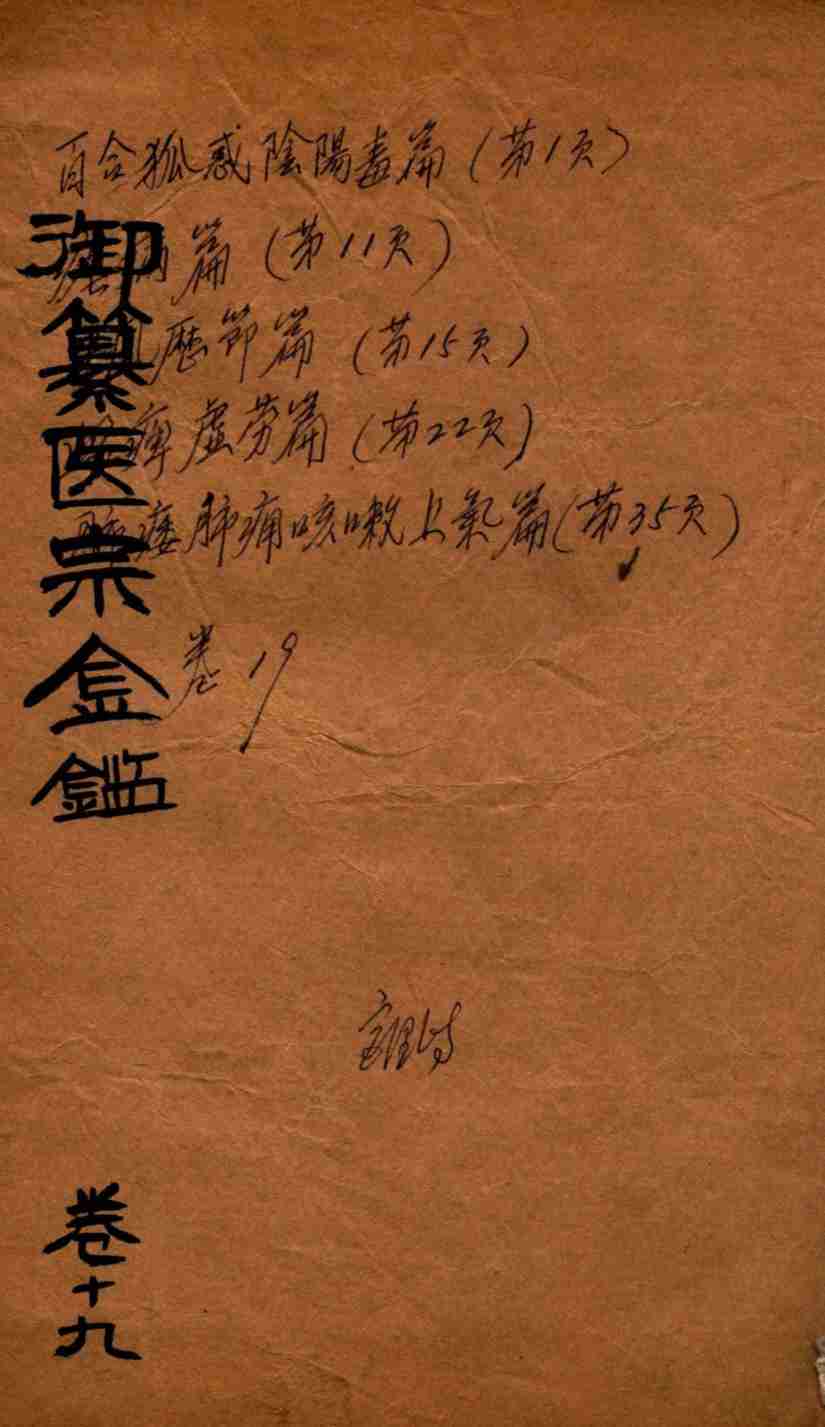 百合狐惑陰陽毒篇(第1页)
瘧病篇(第11页)
歷節篇(第15页)
痺虛劳篇(第22页)
肺痿肺痈咳嗽上氣篇(第35页)
卷19
御纂医宗金鑑
卷十九